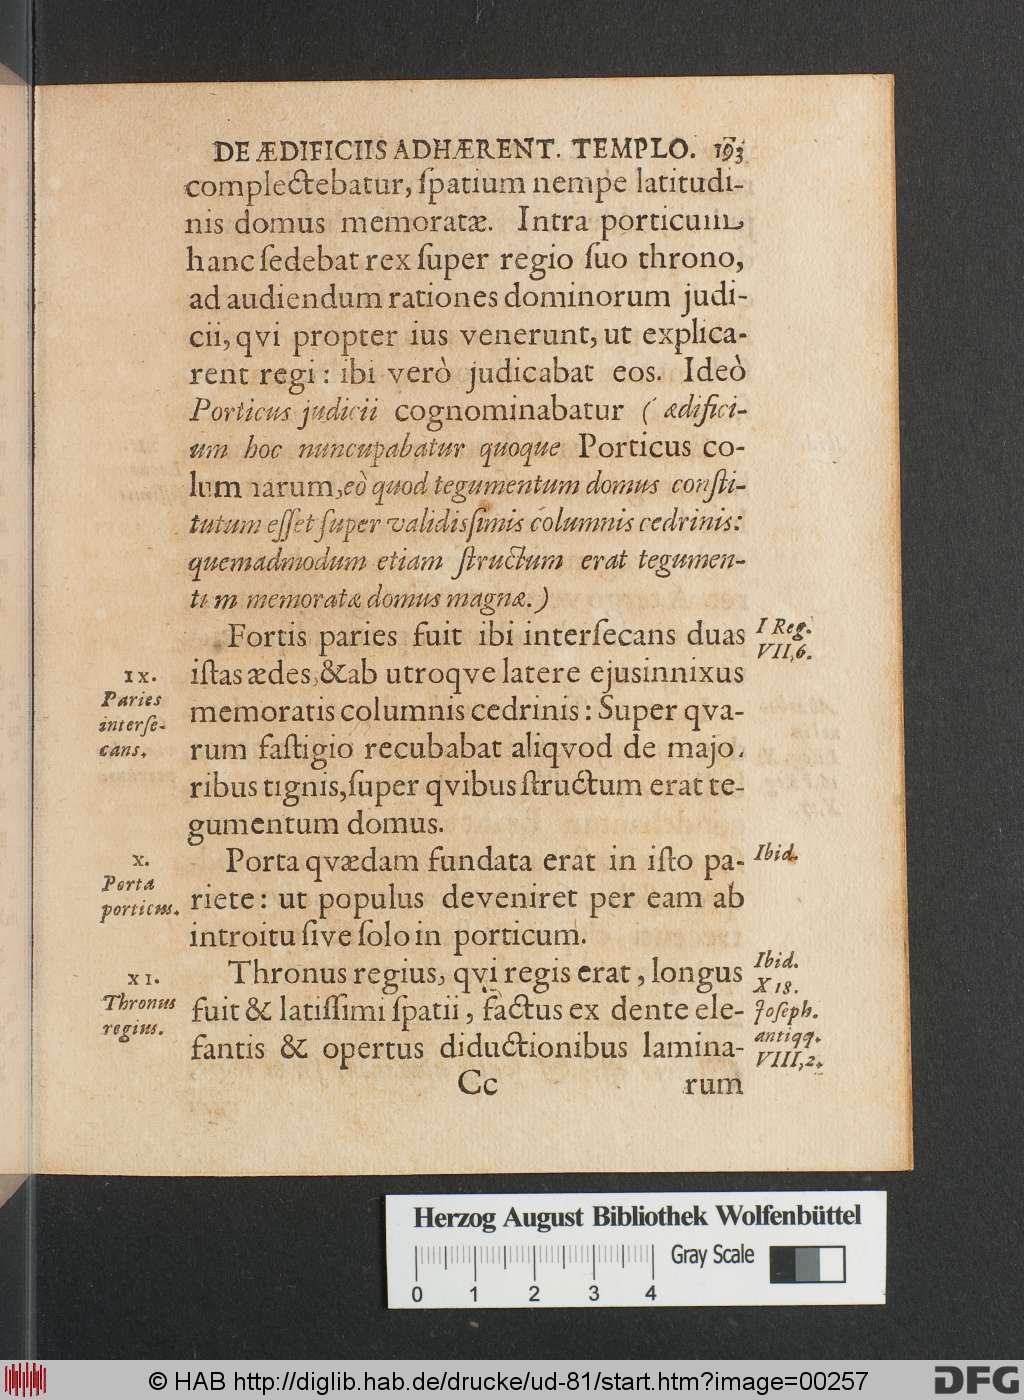 DE ÆDIFICIIS ADHÆRENT. TEMPLO. 193
complectebatur, ſpatium nempe latitudi-
nis domus memoratæ. Intra porticum
hanc ſedebat rex ſuper regio ſuo throno,
ad audiendum rationes dominorum judi-
cii, qvi propter ius venerunt, ut explica-
rent regi: ibi verò judicabat eos. Ideò
Porticus judicii cognominabatur (ædifici-
um hoc nuncupabatur quoque Porticus co-
lumnarum, eò quod tegumentum domus conſti-
tutum eſſet ſuper validisſimis columnis cedrinis:
quemadmodum etiam ſtructum erat tegumen-
tum memoratæ domus magnæ.)
Fortis paries fuit ibi interſecans duas
I Reg.
VII,6.
IX.
Paries
interſe-
cans.
iſtas ædes, & ab utroqve latere ejus innixus
memoratis columnis cedrinis: Super qva-
rum faſtigio recubabat aliqvod de majo-
ribus tignis, ſuper qvibus ſtructum erat te-
gumentum domus.
X.
Porta
porticus.
Porta qvædam fundata erat in iſto pa-
Ibid.
riete: ut populus deveniret per eam ab
introitu ſive ſolo in porticum.
XI.
Thronus
regius.
Thronus regius, qvi regis erat, longus
Ibid.
X 18.
Joſeph.
antiqq.
VIII,2.
fuit & latiſſimi ſpatii, factus ex dente ele-
fantis & opertus diductionibus lamina-
Cc rum
Herzog August Bibliothek Wolfenbüttel
Gray Scale
0 1 2 3 4
© HAB http://diglib.hab.de/drucke/ud-81/start.htm?image=00257
DFG